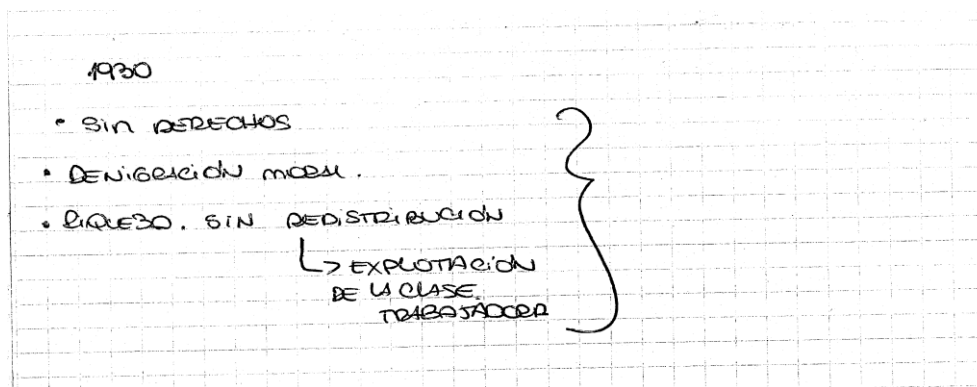 1930
• Sin DERECHOS
• DENIGRACIÓN MORAL.
• RIQUEZA. SIN REDISTRIBUCIÓN
↳ EXPLOTACIÓN
DE LA CLASE.
TRABAJADORA